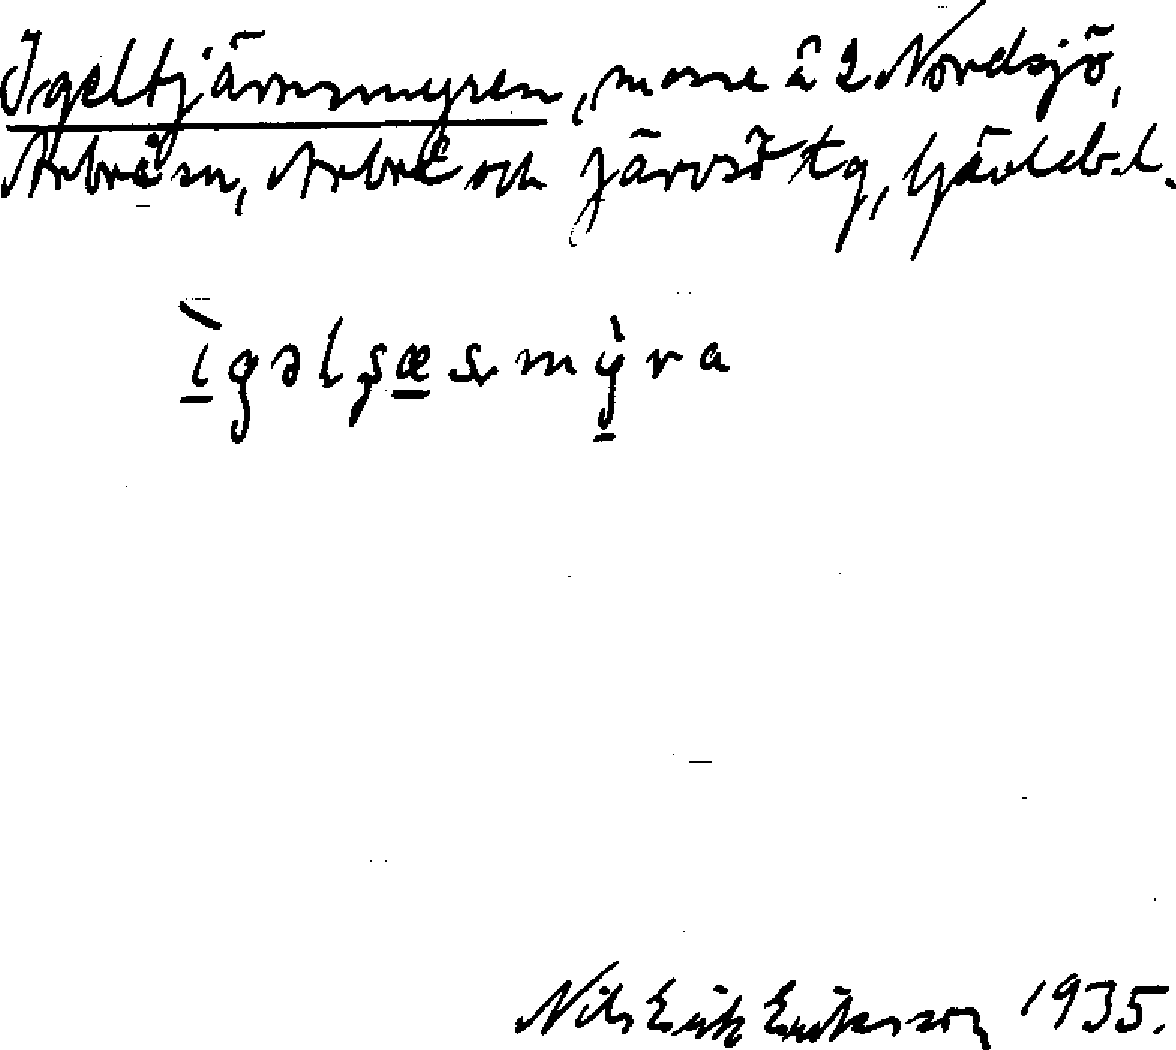 Igeltjärnsmyren, mosse å 2 Nordsjö,
Arbrå sn, Arbrå och Järvsö tg, Gävleb. l.
ìgəlşæsmỳra
Nils Erik Eriksson 1935.